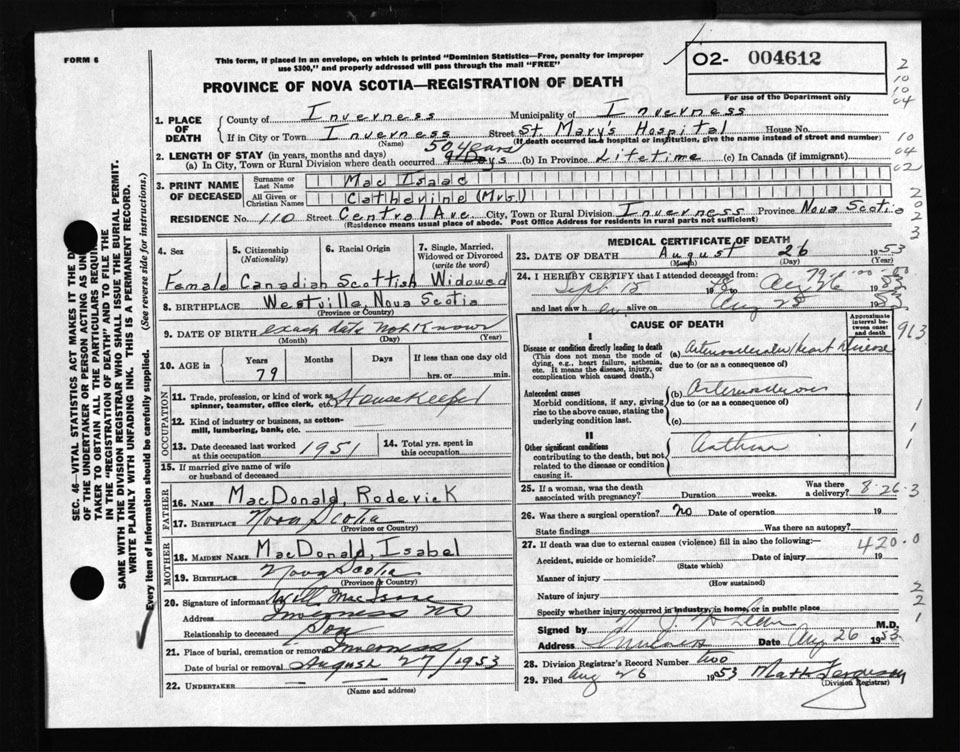 FORM 6
This form, if placed in an envelope, on which is printed "Dominion Statistics—Free, penalty for improper
use $300," and properly addressed will pass through the mail "FREE"
O2- 004612
For use of the Department only
PROVINCE OF NOVA SCOTIA—REGISTRATION OF DEATH
1. PLACE OF DEATH
County of Inverness Municipality of Inverness
If in City or Town Inverness Street St Marys Hospital House No.
(Name) (If death occurred in a hospital or institution, give the name instead of street and number)
2. LENGTH OF STAY (in years, months and days) 50 years
(a) In City, Town or Rural Division where death occurred 9 Days (b) In Province Lifetime (c) In Canada (if immigrant)
3. PRINT NAME OF DECEASED
Surname or Last Name Mac Isaac
All Given or Christian Names Catherine (Mrs.)
RESIDENCE No. 110 Street Central Ave. City, Town or Rural Division Inverness Province Nova Scotia
(Residence means usual place of abode. Post Office Address for residents in rural parts not sufficient)
4. Sex
5. Citizenship (Nationality)
6. Racial Origin
7. Single, Married, Widowed or Divorced (write the word)
Female Canadian Scottish Widowed
8. BIRTHPLACE Westville, Nova Scotia
(Province or Country)
9. DATE OF BIRTH exact date not Known
(Month) (Day) (Year)
10. AGE in Years Months Days If less than one day old
79 hrs. or min.
OCCUPATION
11. Trade, profession, or kind of work as spinner, teamster, office clerk, etc. House Keeper
12. Kind of industry or business, as cotton-mill, lumbering, bank, etc.
13. Date deceased last worked at this occupation 1951
14. Total yrs. spent in this occupation
15. If married give name of wife or husband of deceased
FATHER
16. NAME MacDonald, Roderick
17. BIRTHPLACE Nova Scotia
(Province or Country)
MOTHER
18. MAIDEN NAME MacDonald, Isabel
19. BIRTHPLACE Nova Scotia
(Province or Country)
20. Signature of informant Will MacIsaac
Address Inverness NS
Relationship to deceased Son
21. Place of burial, cremation or removal Inverness
Date of burial or removal August 27/1953
22. UNDERTAKER
(Name and address)
MEDICAL CERTIFICATE OF DEATH
23. DATE OF DEATH August 26 1953
(Month) (Day) (Year)
24. I HEREBY CERTIFY that I attended deceased from: 79-0-00-60
Sept 15 to Aug 26 1953
and last saw her alive on Aug 25 1953
CAUSE OF DEATH
Approximate interval between onset and death
I
Disease or condition directly leading to death
(This does not mean the mode of dying, e.g., heart failure, asthenia, etc. It means the disease, injury, or complication which caused death.)
(a) Heart Disease
due to (or as a consequence of)
Antecedent causes
Morbid conditions, if any, giving rise to the above cause, stating the underlying condition last.
(b)
due to (or as a consequence of)
(c)
II
Other significant conditions
contributing to the death, but not related to the disease or condition causing it.
25. If a woman, was the death associated with pregnancy? Duration weeks. Was there a delivery? 8-26-3
26. Was there a surgical operation? no Date of operation 19
State findings Was there an autopsy?
27. If death was due to external causes (violence) fill in also the following: 420.0
Accident, suicide or homicide? Date of injury 19
(State which)
Manner of injury
(How sustained)
Nature of injury
Specify whether injury occurred in industry, in home, or in public place
Signed by M.D.
Address Inverness Date Aug 26 1953
28. Division Registrar's Record Number two
29. Filed Aug 26 1953 Matt Ferguson
(Division Registrar)
SEC. 46—VITAL STATISTICS ACT MAKES IT THE D
OF THE UNDERTAKER OR PERSON ACTING AS UN
TAKER TO OBTAIN ALL THE PARTICULARS REQUIR
IN THE "REGISTRATION OF DEATH" AND TO FILE THE
SAME WITH THE DIVISION REGISTRAR WHO SHALL ISSUE THE BURIAL PERMIT.
WRITE PLAINLY WITH UNFADING INK. THIS IS A PERMANENT RECORD.
Every item of information should be carefully supplied. (See reverse side for instructions.)
2
10
10
04
10
04
02
2
2
0
2
3
913
1
1
1
2
2
1